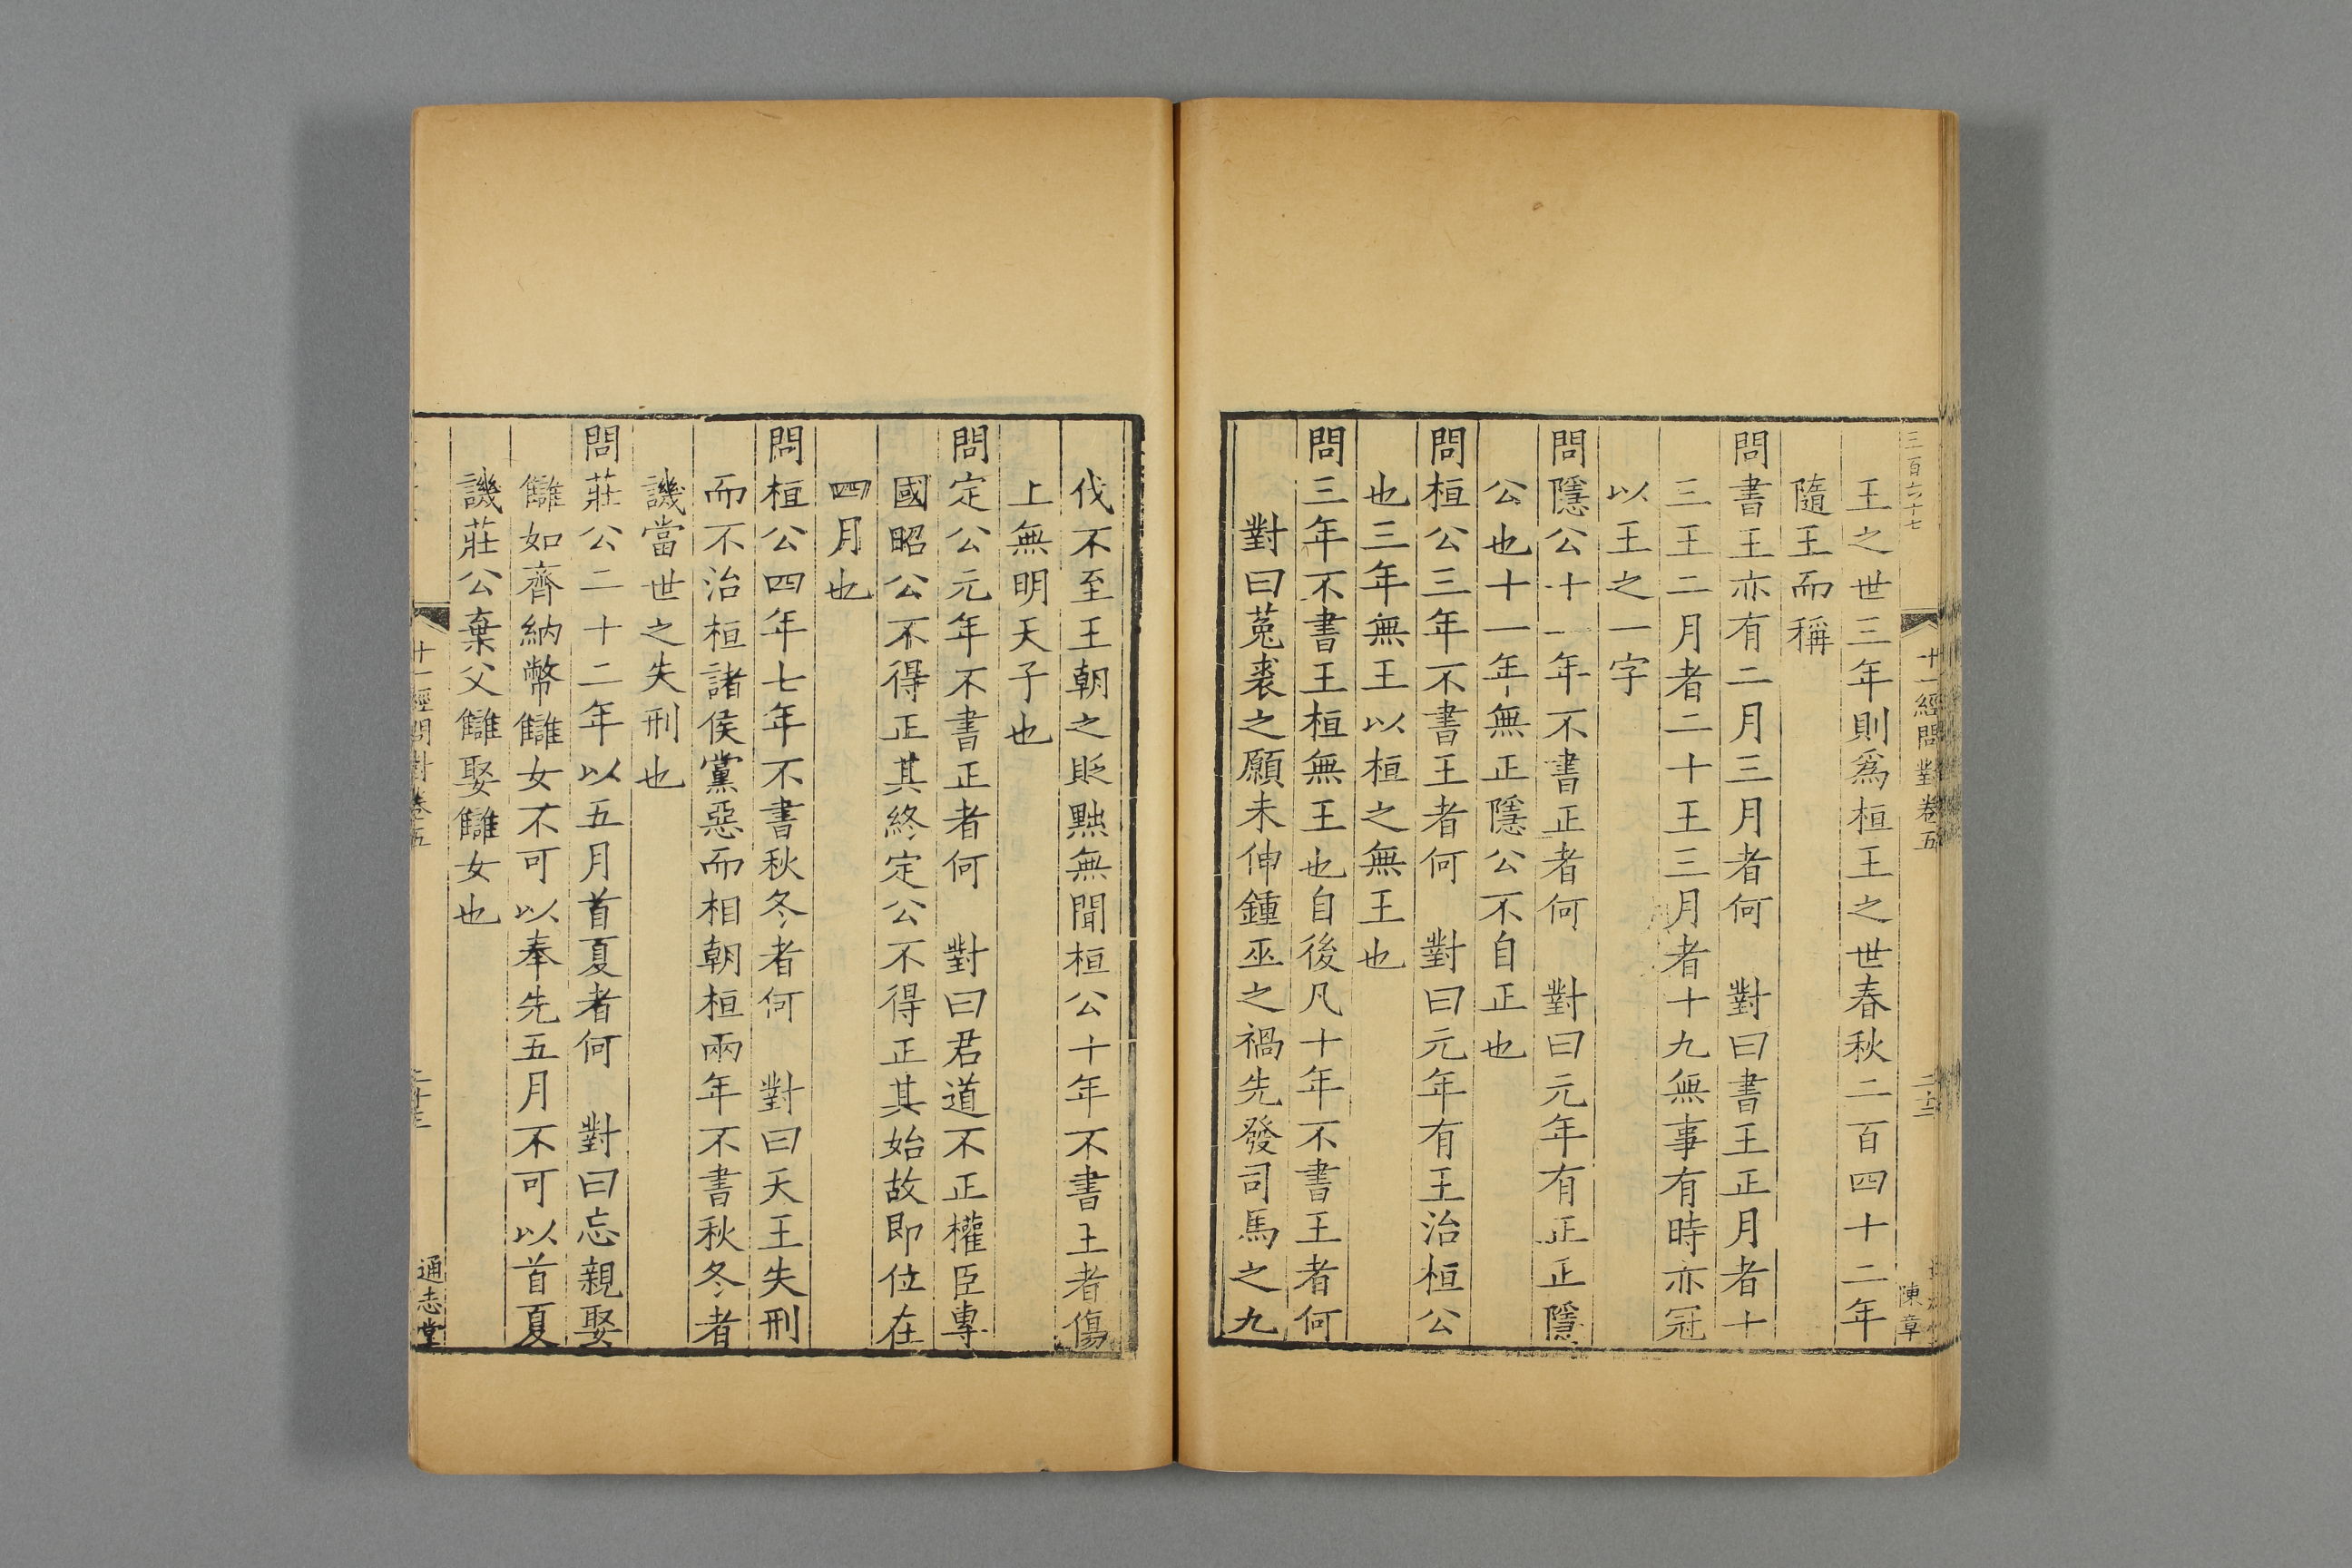 三百六十七
十一經問對卷五
陳章
王之世三年則爲桓王之世春秋二百四十二年
隨王而稱
問書王亦有二月三月者何　對曰書王正月者十
三王二月者二十王三月者十九無事有時亦冠
以王之一字
問隱公十一年不書正者何　對曰元年有正正隱
公也十一年無正隱公不自正也
問桓公三年不書王者何　對曰元年有王治桓公
也三年無王以桓之無王也
問三年不書王桓無王也自後凡十年不書王者何
對曰菟裘之願未伸鍾巫之禍先發司馬之九
伐不至王朝之貶黜無聞桓公十年不書王者傷
上無明天子也
問定公元年不書正者何　對曰君道不正權臣專
國昭公不得正其終定公不得正其始故即位在
四月也
問桓公四年七年不書秋冬者何　對曰天王失刑
而不治桓諸侯黨惡而相朝桓兩年不書秋冬者
譏當世之失刑也
問莊公二十二年以五月首夏者何　對曰忘親娶
讎如齊納幣讎女不可以奉先五月不可以首夏
譏莊公棄父讎娶讎女也
十一經問對卷五
通志堂